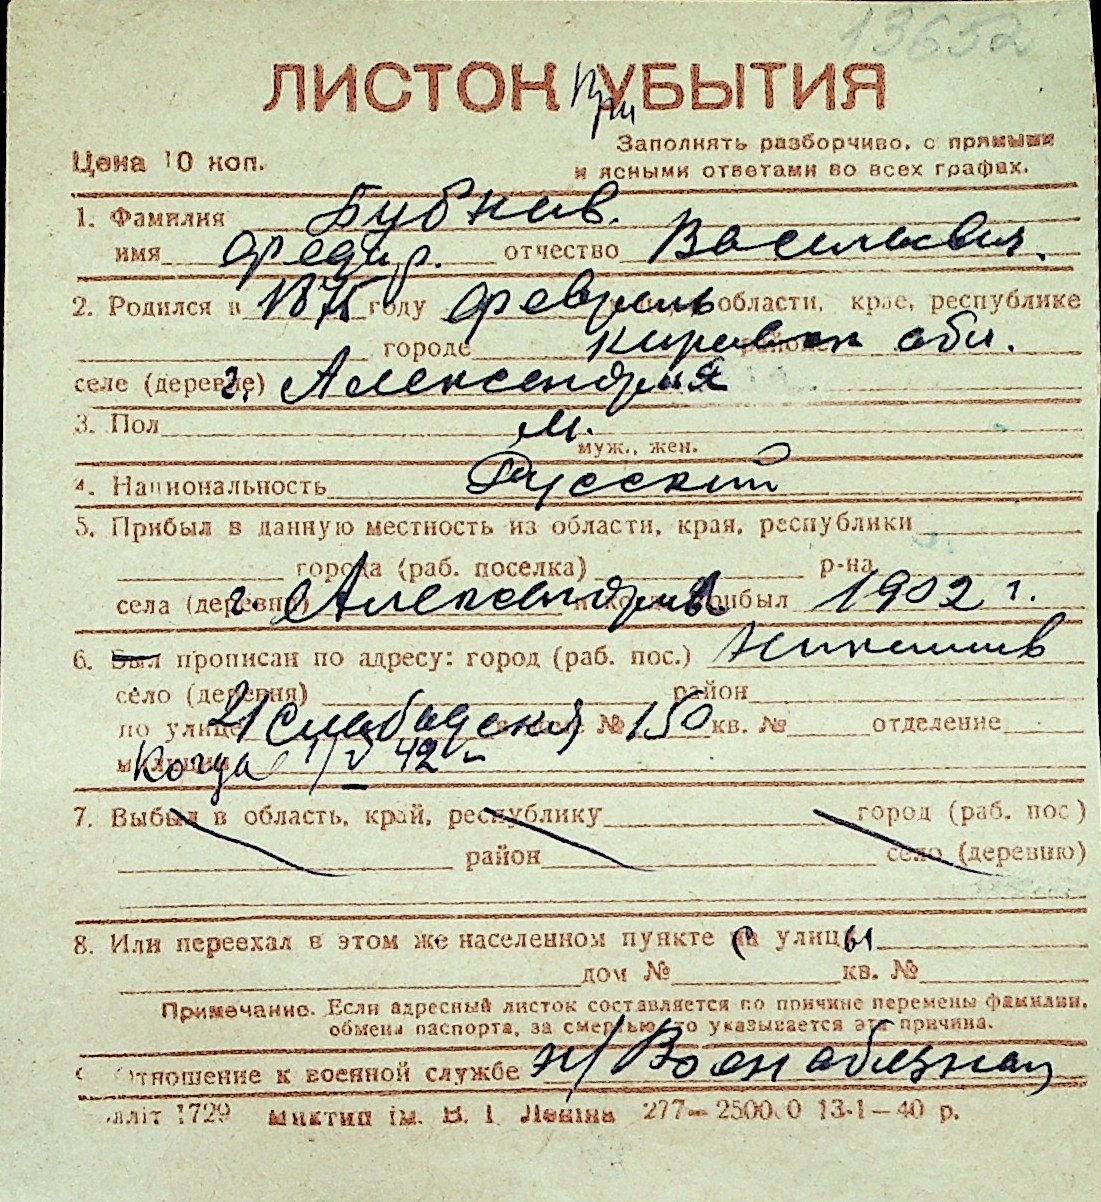 13652
ЛИСТОК При УБЫТИЯ
Цена 10 коп.
Заполнять разборчиво, с прямыми
и ясными ответами во всех графах.
1. Фамилия Бубнов.
имя Федир. отчество Васильевич.
2. Родился в 1875 году февраль области, крае, республике
городе Кировск обл.
селе (деревне) г. Александрия
3. Пол м.
муж., жен.
4. Национальность Русский
5. Прибыл в данную местность из области, края, республики
города (раб. поселка) р-на
села (деревни) г. Александрия и когда прибыл 1902 г.
6. Был прописан по адресу: город (раб. пос.)
село (деревня) район
по улице 21 Слабодская № 150 кв. № отделение
милиции Когда 1/V 42 г.
7. Выбыл в область, край, республику город (раб. пос.)
район село (деревню)
8. Или переехал в этом же населенном пункте с улицы
дом № кв. №
Примечание. Если адресный листок составляется по причине перемены фамилии,
обмена паспорта, за смертью, то указывается эта причина.
Отношение к военной службе н/Военобязнан
1729 Миктип ім. В. І. Леніна 277—25000 13-1—40 р.